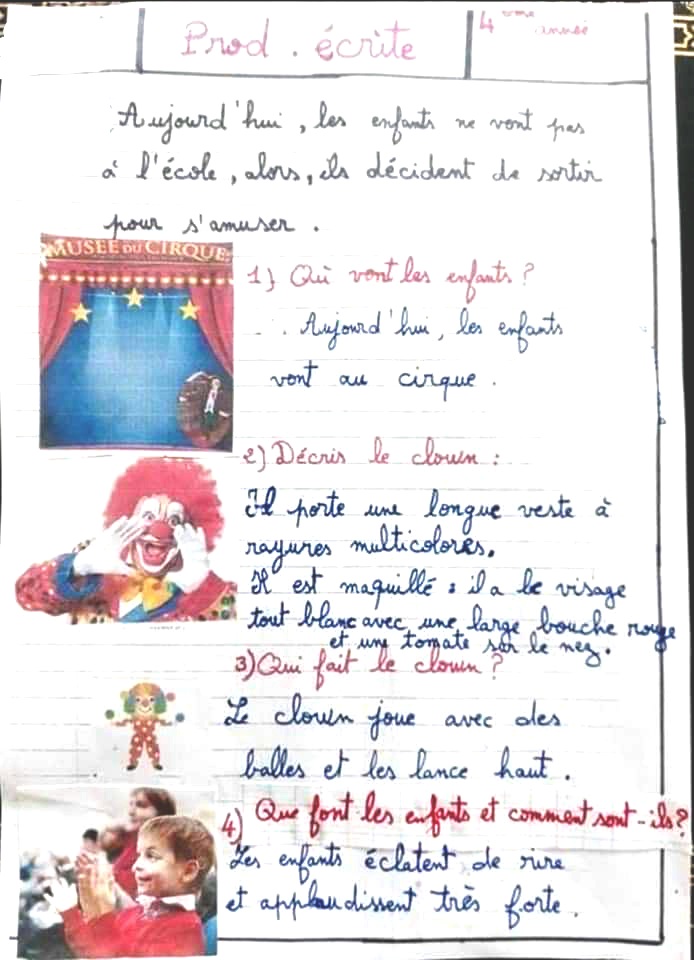 Prod. écrite
4ème année
Aujourd'hui, les enfants ne vont pas
à l'école, alors, ils décident de sortir
pour s'amuser.
MUSÉE DU CIRQUE
1) Où vont les enfants ?
Aujourd'hui, les enfants
vont au cirque.
2) Décris le clown :
Il porte une longue veste à
rayures multicolores.
Il est maquillé : il a le visage
tout blanc avec une large bouche rouge
et une tomate sur le nez.
3) Qui fait le clown ?
Le clown joue avec des
balles et les lance haut.
4) Que font les enfants et comment sont-ils ?
Les enfants éclatent de rire
et applaudissent très forte.